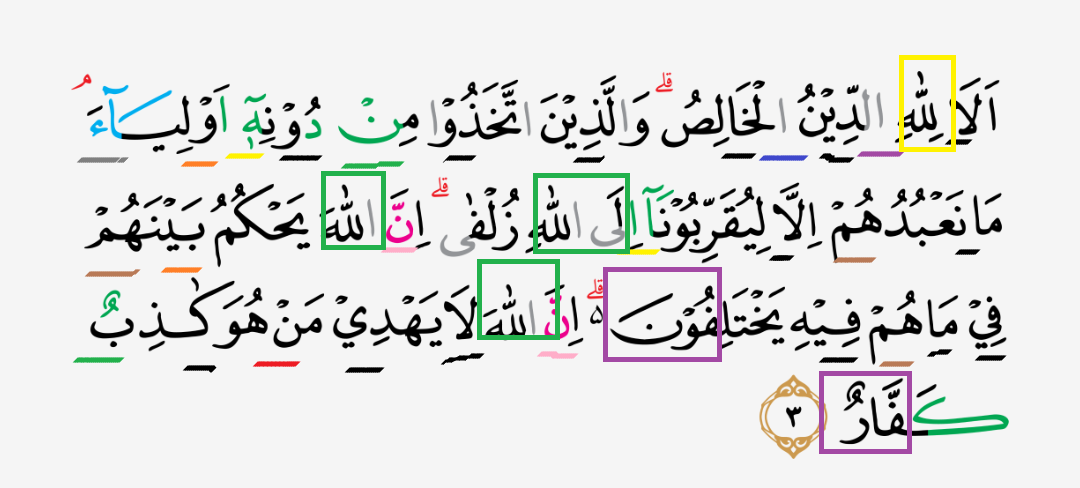 اَلَا لِلّٰهِ الدِّيْنُ الْخَالِصُ ۗ وَالَّذِيْنَ اتَّخَذُوْا مِنْ دُوْنِهٖٓ اَوْلِيَاۤءَۘ
مَا نَعْبُدُهُمْ اِلَّا لِيُقَرِّبُوْنَآ اِلَى اللّٰهِ زُلْفٰى ۗ اِنَّ اللّٰهَ يَحْكُمُ بَيْنَهُمْ
فِيْ مَا هُمْ فِيْهِ يَخْتَلِفُوْنَ ەۗ اِنَّ اللّٰهَ لَا يَهْدِيْ مَنْ هُوَ كٰذِبٌ
كَفَّارٌ ٣